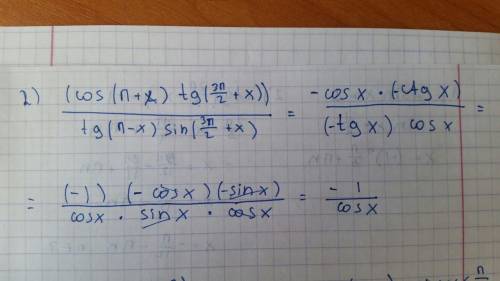 2) (cos(π+x) tg(3π/2 + x)) / (tg(π-x) sin(3π/2 + x)) = (-cos x · (-ctg x)) / ((-tg x) cos x) =
= ((-1) (-cos x)(-sin x)) / (cos x · sin x · cos x) = - 1 / cos x